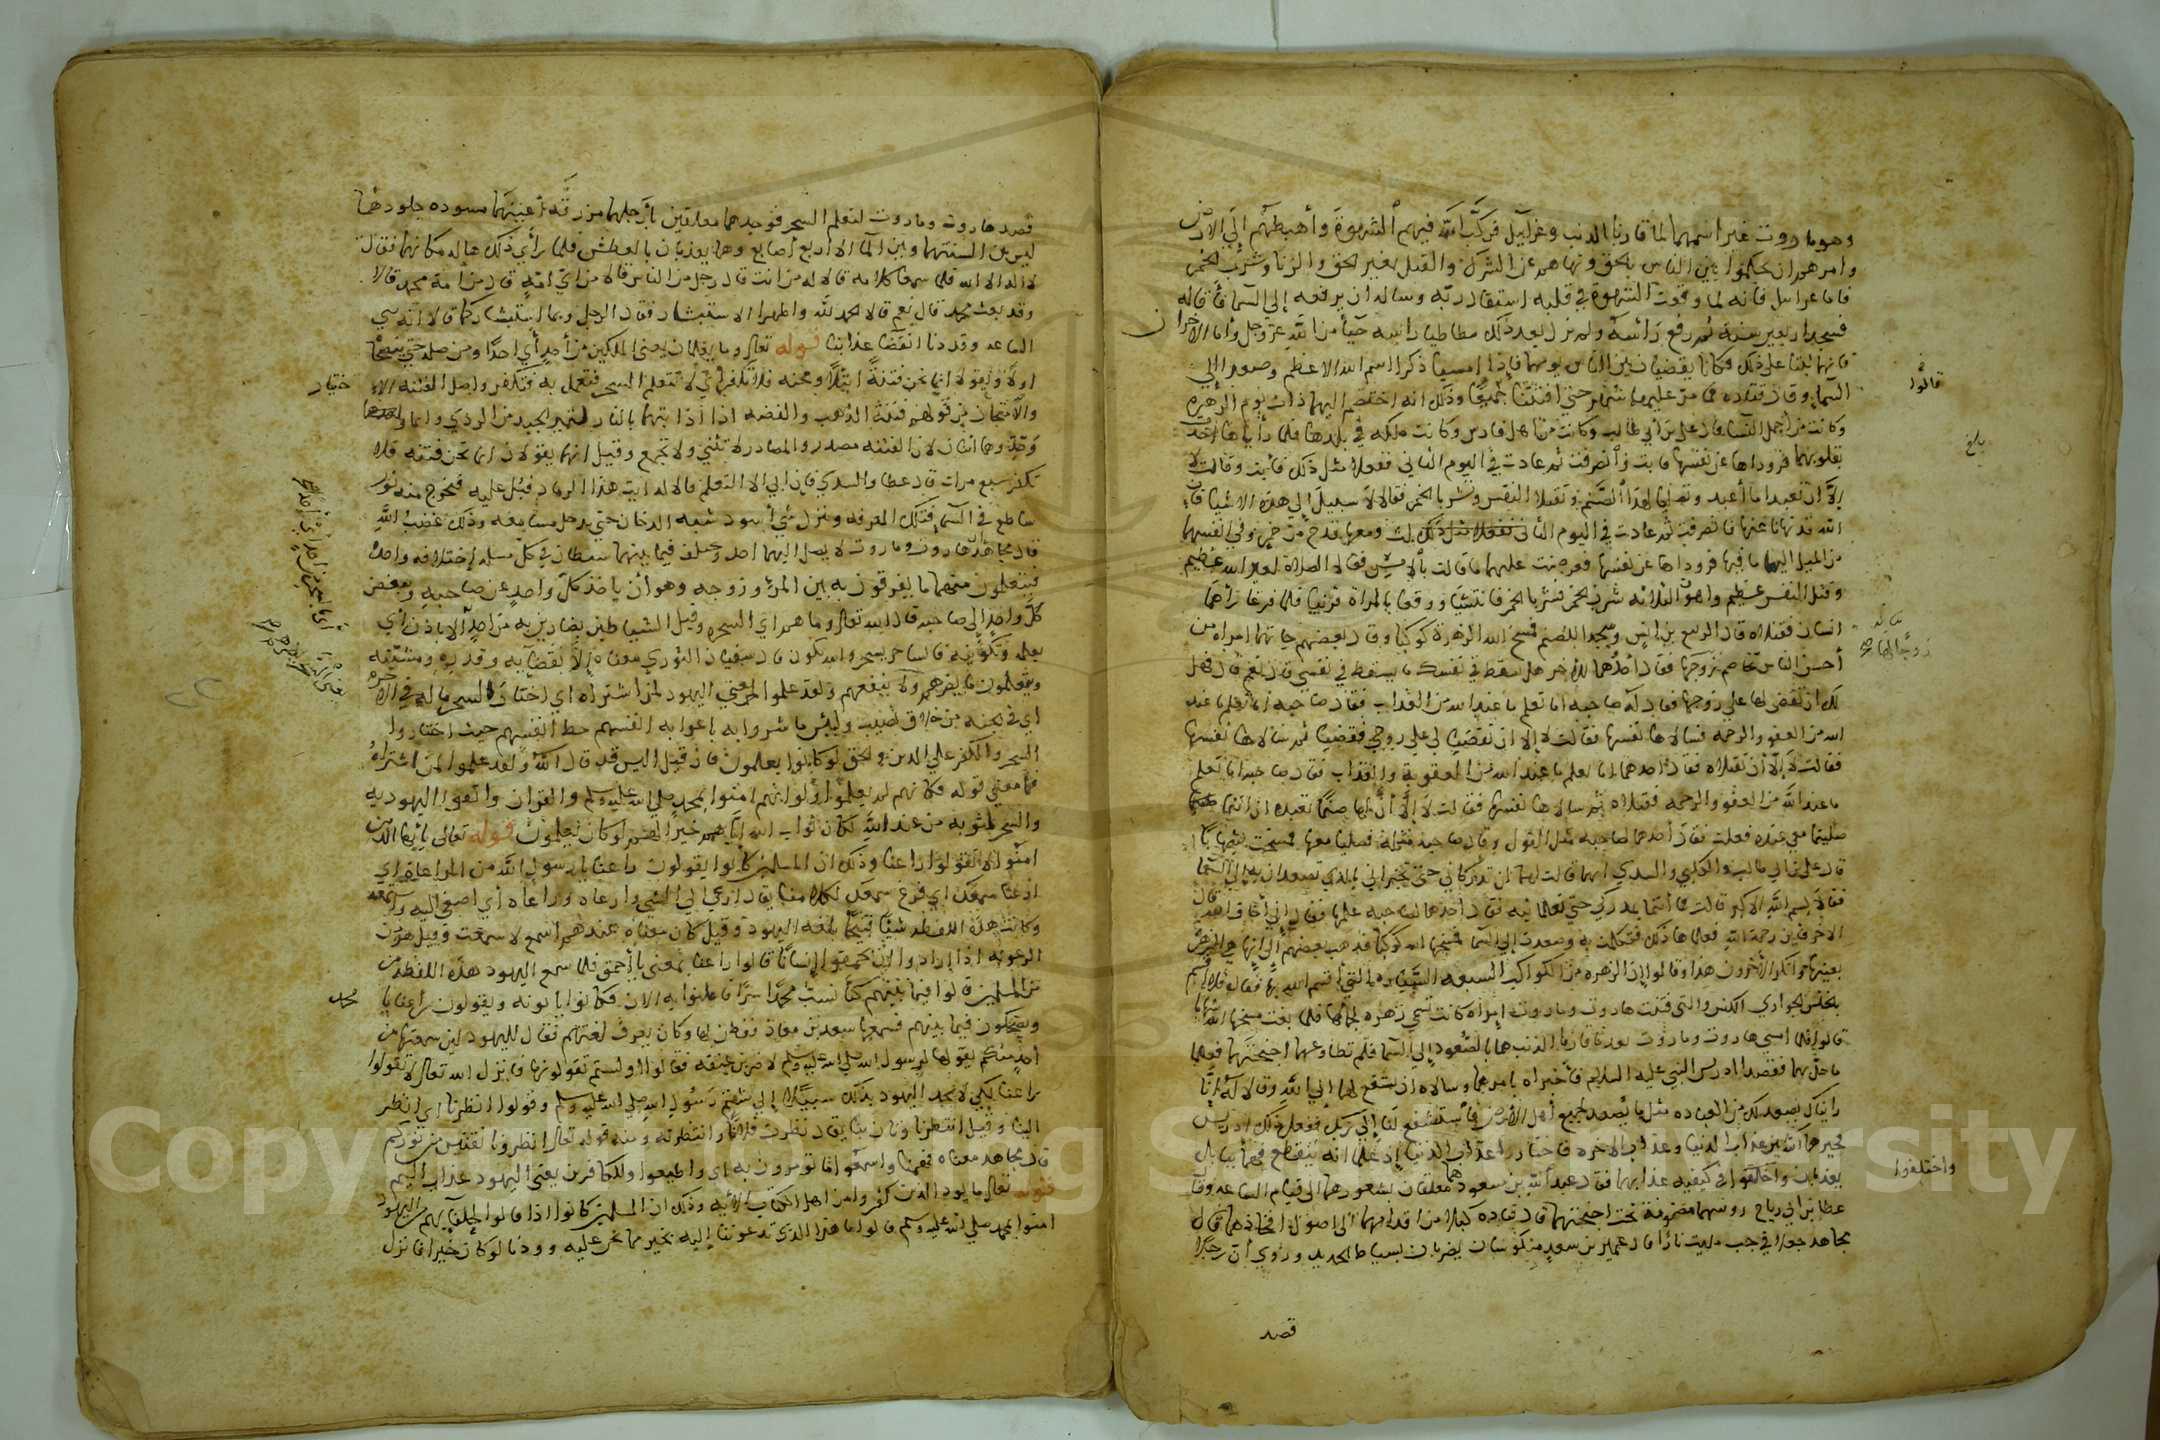 وهوما روت غير اسمهما لما قارنا الذنب وعزآيل فركّب الله فيهم الشهوة وأهبطهم إلي الأرض
وامرهم ان يحكموا بين الناس بالحق ونهاهم عن الشرك والقتل بغير الحق والزنا وشرب الخمر
فاما عزاييل فانه لما وقعت الشهوة في قلبه استقال ربه وساله ان يرفعه إلي السما فاقاله
فسجد اربعين سنة ثم رفع رأسه ولم يزل بعد ذلك مطاطيا راسه حيآ من الله عز وجل وأما الاخران
فانهما ثبتا على ذلك فكانا يقضيان بين الناس يومهما فاذا امسيا ذكرا اسم الله الاعظم وصعدا إلى
قالوا
السمآء وقال قتاده فما مر عليهما شهر حتي افتتنا جميعا وذلك انه اختصم اليهما ذات يوم الزهره
وكانت من أجمل النسآ قال علي بن أبي طالب وكانت من اهل فارس وكانت ملكه في بلدها فلما رأياها اخذت
بلغ
بقلوبهما فروداها عن نفسها فابت وانصرفت ثم عادت في اليوم الثاني ففعلا مثل ذلك فابت وقالت لا
إلا ان تعبدا ما أعبد وتصليا لهذا الصنم وتقتلا النفس وتشربا الخمر فقالا لا سبيل إلي هذه الاشيا فان
الله قد نهانا عنها فانصرفت ثم عادت في اليوم الثالث ومعها قدح من خمر وفي انفسهما
من الميل اليها ما فيها فروداها عن نفسها فعرضت عليهما ما قالت بالامس فقالا الصلاة لغير الله عظيم
وقتل النفس عظيم واهون الثلاثه شرب الخمر فشربا الخمر فانتشيا ووقعا بالمراة فزنيا فلما فرغا رآهما
انسان فقتلاه قال الربيع بن انس وسجدا للصنم فمسخ الله الزهرة كوكبا وقال بعضهم جاتهما امراه من
أحسن الناس تخاصم زوجها فقال أحدهما للاخر هل سقط في نفسك ما سقط في نفسي قال نعم قال فهل
لك ان تقضي لها على زوجها فقال له صاحبه اما تعلم ما عند الله من العذاب فقال صاحبه اما تعلم ما عند
الله من العفو والرحمه فسالاها نفسها فقالت لا إلا ان تقضيا لي على زوجي فقضيا ثم سالاها نفسها
فقالت لا إلا أن تقتلاه فقال احدهما اما تعلم ما عند الله من العقوبة والعذاب فقال صاحبه اما تعلم
ما عند الله من العفو والرحمه فقتلاه ثم سالاها نفسها فقالت لا إلا أن لها صنما تعبده ان انتما
صليتما معي عنده فعلت فقال أحدهما لصاحبه مثل القول وقال صاحبه مثله فصليا معها فمسخت شهابا
قال علي بن أبي طالب والكلبي والسدي انها قالت لهما لن تدركاني حتى تخبراني بالذي تصعدان به إلى السمآ
فقالا بسم الله الاكبر قالت فما انتما بمدركي حتى تعلمانيه فقال أحدهما لصاحبه علمها فقال إني أخاف الله قال
الاخر فاين رحمة الله فعلماها ذلك فتكلمت به وصعدت إلى السما فمسخها الله كوكبا فذهب بعضهم إلى انها هي الزهرة
بعينها وانكر الأخرون هذا وقالوا إن الزهره من الكواكب السبعه السياره التي أقسم الله بها فقال فلا اقسم
بالخنس الجواري الكنس والتي فتنت هاروت وماروت امرأه كانت تسمي زهره لجمالها فلما بغت مسخها الله شهابا
قالوا فلما امسي هاروت وماروت بعدما قارفا الذنب هما بالصعود إلى السما فلم تطاوعهما اجنحتهما فعلما
ما حل بهما فقصدا ادريس النبي عليه السلام فأخبراه بامرهما وسالاه ان يشفع لهما الى الله وقالا له انا
رأيناك يصعد لك من العباده مثل ما يصعد لجميع أهل الأرض فاستشفع لنا إلى ربك ففعل ذلك ادريس
فخيرهما الله بين عذاب الدنيا وعذاب الاخره فاختارا عذاب الدنيا إذ علما انه ينقطع فهما ببابل
واختلفوا
يعذبان واختلفوا في كيفيه عذابهما فقال عبد الله بن مسعود هما معلقان بشعورهما الى قيام الساعه وقال
عطا بن ابي رباح روسهما مصوبة تحت اجنحتهما قال قتاده كبلا من اقدامهما الى اصول افخاذهما قال
مجاهد جعلا في جب مليت نارا قال عمير بن سعد منكوسان يضربان بسياط الحديد وروي أن رجلا
قصد
قصد هاروت وماروت لتعلم السحر فوجدهما معلقين بأرجلهما مزرقة أعينهما مسوده جلودهما
ليس بين السنتهما وبين الما الا اربع أصابع وهما يعذبان بالعطش فلما رأي ذلك هاله مكانهما فقال
لا اله الا الله فلما سمعا كلامه قالا له من انت قال رجل من الناس قالا من اي امة قال من أمة محمد قالا
وقد بعث محمد قال نعم قالا الحمد لله واظهرا الاستبشار فقال الرجل وبما استبشاركما قالا انه نبي
الساعه وقد دنا انقضآ عذابنا قوله تعالى وما يعلمان يعني الملكين من أحد أي احدا ومن صلة حتي ينصحاه
اولا ويقولا إنما نحن فتنة ابتلآ ومحنه فلا تكفر أي لا تتعلم السحر فتعمل به فتكفر واصل الفتنه الاختبار
والامتحان من قولهم فتنت الذهب والفضه اذا أذابتهما بالنار ليتميز الجيد من الردي وانما
وحد وهما اثنان لان الفتنه مصدر والمصادر لا تثني ولا تجمع وقيل انهما يقولان انما نحن فتنه فلا
تكفر سبع مرات قال عطا والسدي فان أبي الا التعلم قالا له ايت هذا الرماد فبل عليه فيخرج منه نور
ساطع في السما فتلك المعرفه وينزل شي أسود شبه الدخان حتى يدخل مسامعه وذلك غضب الله
قال مجاهد هاروت وماروت لا يصل اليهما احد ويختلف فيما بينهما شيطان في كل مسله اختلافه واحده
فيتعلمون منهما ما يفرقون به بين المرء وزوجه وهو أن ياخذ كل واحد عن صاحبه ويبغض
كل واحد إلى صاحبه قال الله تعالى وما هم اي السحره وقيل الشياطين بضارين به من احد الا باذن الله أي
بعلمه وتكوينه فالساحر يسحر والله يكون قال سفيان الثوري معناه إلا بقضآيه وقدره ومشيته
ويتعلمون ما يضرهم ولا ينفعهم ولقد علموا يعني اليهود لمن اشتراه اي اختار السحر ما له في الاخره
اي في الجنه من خلاق نصيب ولبئس ما شروا به باعوا به انفسهم حظ انفسهم حيث اختاروا
السحر والكفر على الدين والحق لو كانوا يعلمون فان قيل اليس قد قال الله ولقد علموا لمن اشتراه
فما معني قوله فكانهم لم يعلموا ولو انهم امنوا بمحمد صلي الله عليه وسلم والقرآن واتقوا اليهوديه
والسحر لمثوبه من عند الله لكان ثواب الله إياهم خيرا لهم لو كانوا يعلمون قوله تعالى يا أيها الذين
امنوا لا تقولوا راعنا وذلك ان المسلمين كانوا يقولون راعنا يا رسول الله من المراعاة اي
ارعنا سمعك اي فرغ سمعك لكلامنا يقال أرعي إلى الشي وارعاه وراعاه أي اصغي اليه واستمعه
وكانت هذه اللفظه شيئا قبيحا بلغه اليهود وقيل كان معناه عندهم اسمع لا سمعت وقيل هو من
الرعونه اذا ارادوا ان يحمقوا إنسانا قالوا راعنا بمعني يا أحمق فلما سمع اليهود هذه اللفظه من
المسلمين قالوا فيما بينهم كنا نسب محمدا سرا فاعلنوا به الان فكانوا ياتونه ويقولون راعنا يا محمد
ويضحكون فيما بينهم فسمعها سعد بن معاذ ففطن لها وكان يعرف لغتهم فقال لليهود لين سمعتها من
أحد منكم يقولها لرسول الله صلي الله عليه وسلم لاضربن عنقه فقالوا اولستم تقولونها فانزل الله تعالى لا تقولوا
راعنا لكي لا يجد اليهود بذلك سبيلا إلى شتم رسول الله صلى الله عليه وسلم وقولوا انظرنا اي انظر
الينا وقيل انتظرنا وتان بنا يقال نظرت فلانا وانتظرته ومنه قوله تعالى انظرونا نقتبس من نوركم
قال مجاهد معناه فهمنا واسمعوا ما تومرون به اي واطيعوا وللكافرين يعني اليهود عذاب اليم
قوله تعالى ما يود الذين كفروا من اهل الكتاب الأيه وذلك ان المسلمين كانوا اذا قالوا لحلفآيهم من اليهود
امنوا بمحمد صلي الله عليه وسلم قالوا ما هذا الذي تدعوننا إليه بخير مما نحن عليه ووددنا لو كان خيرا فانزل